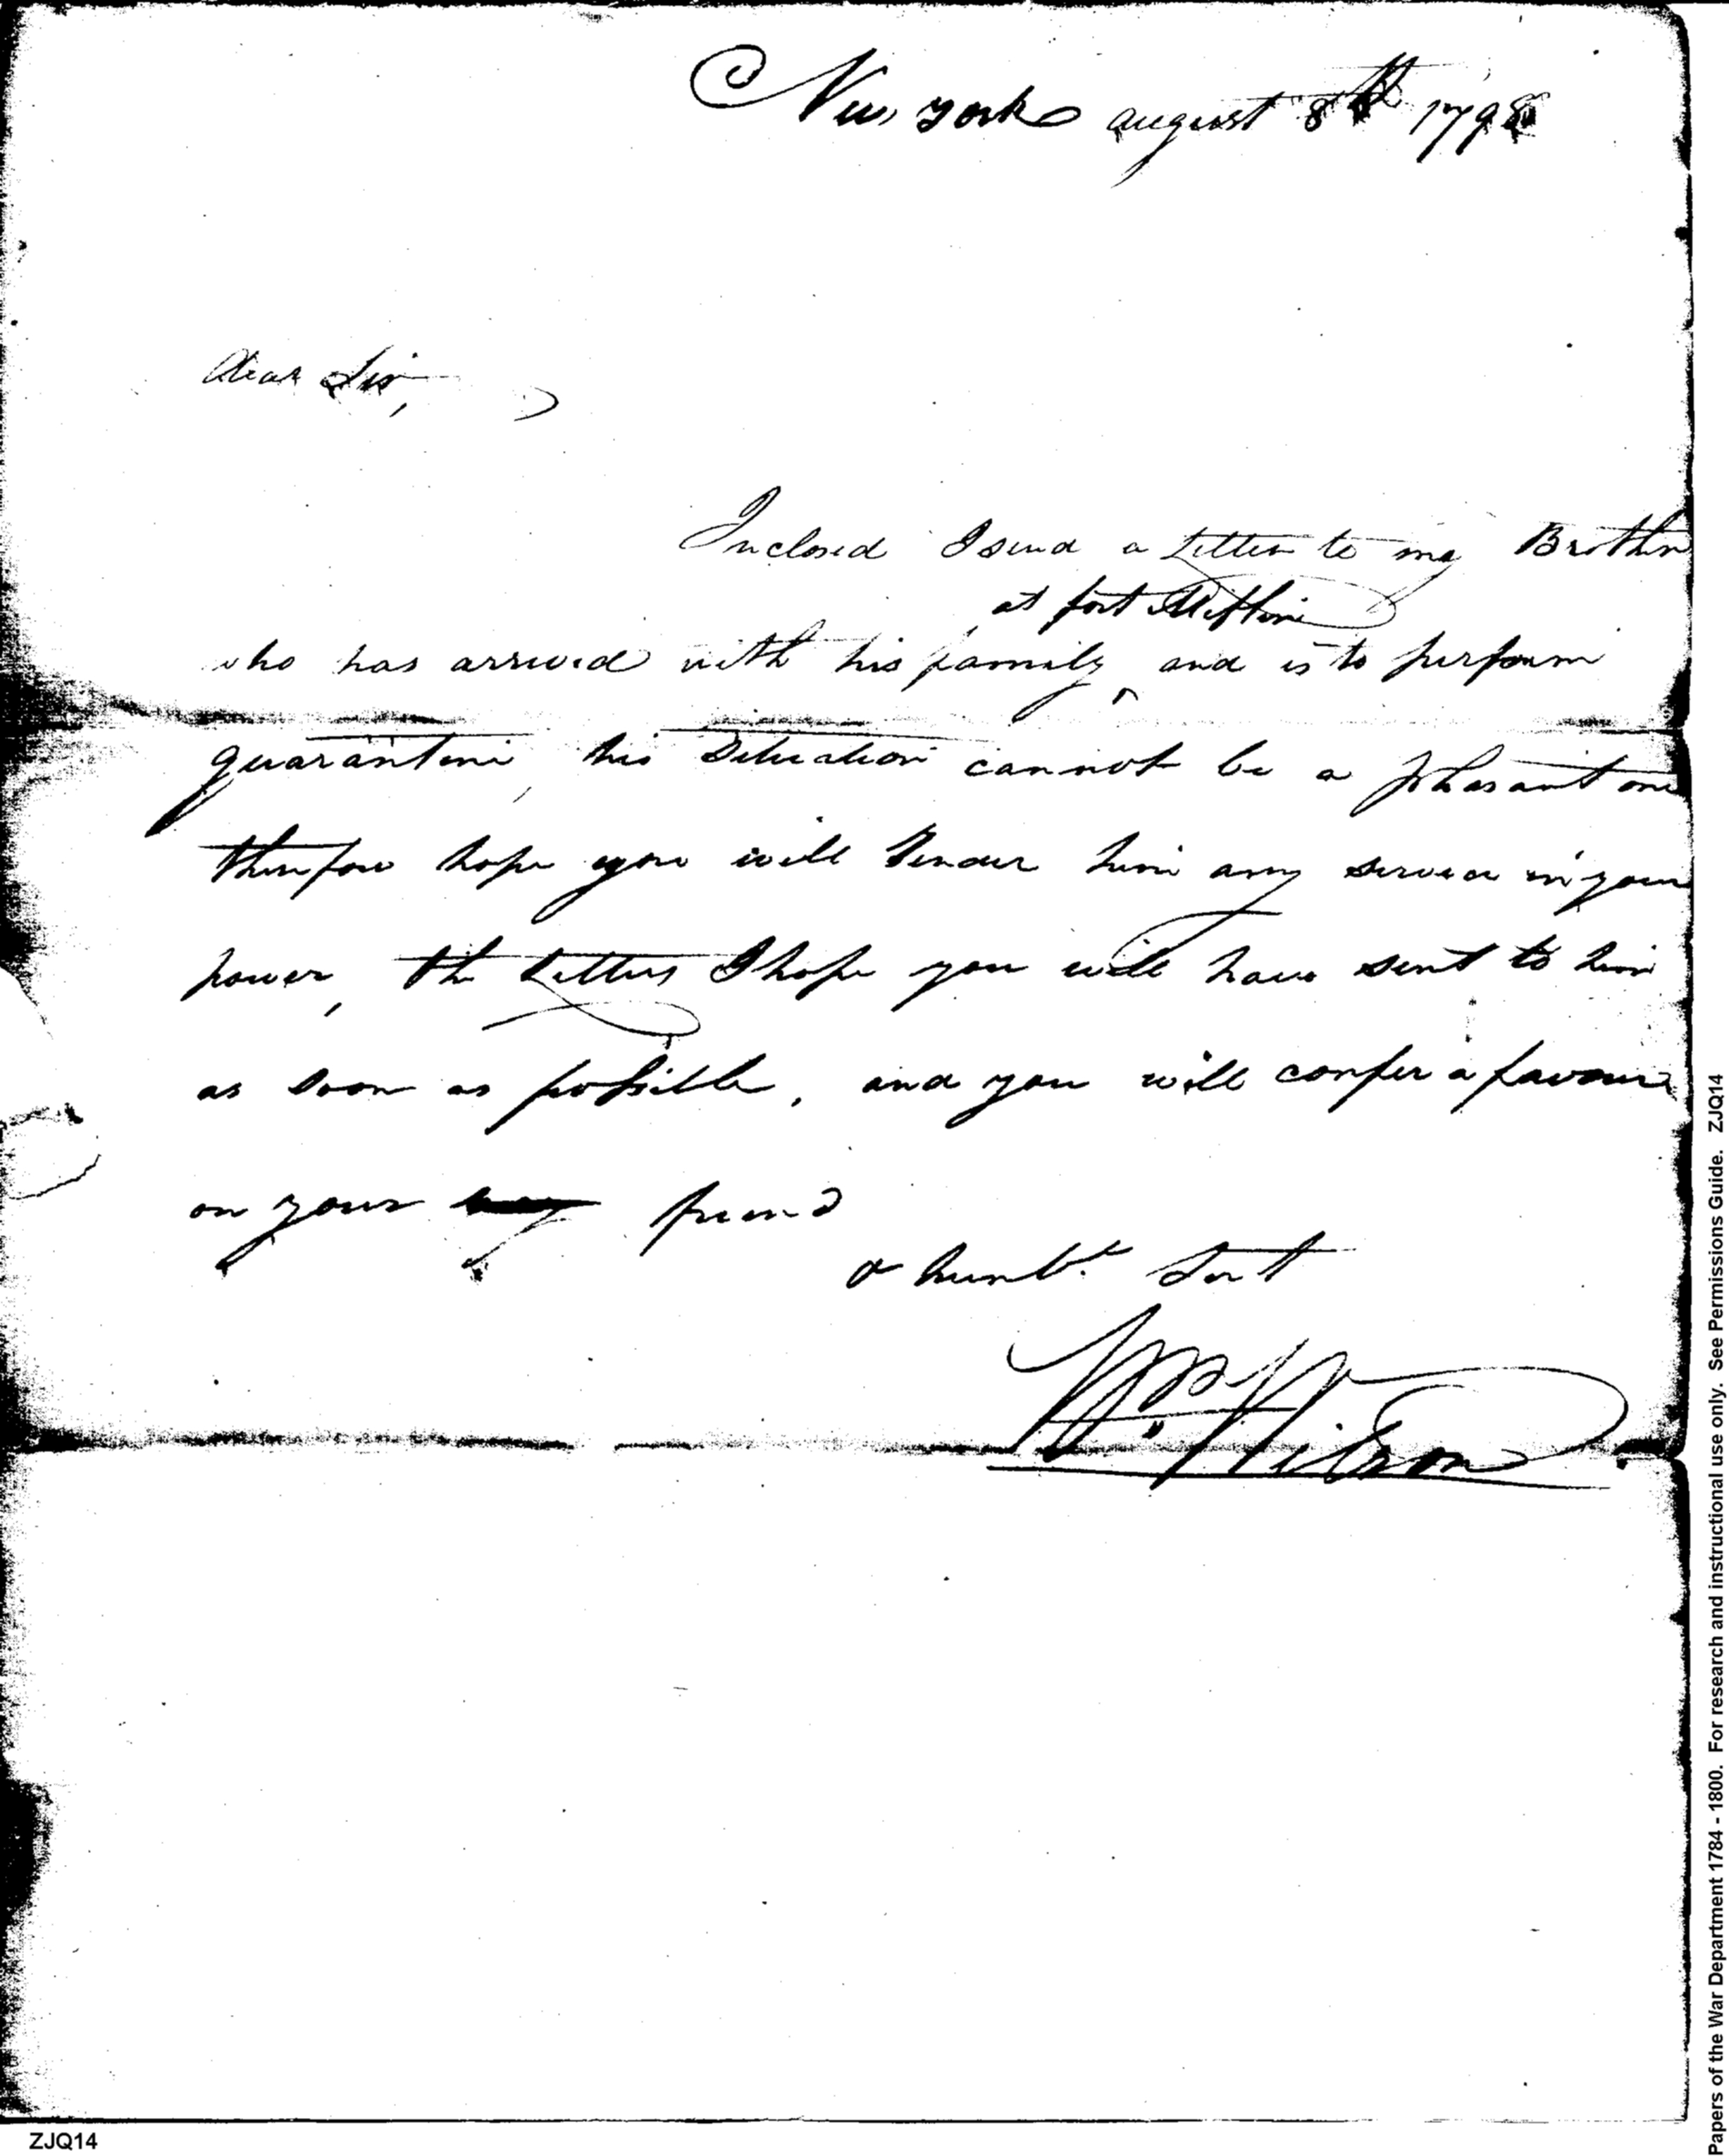 New york august 8th 1798
Dear Sir,
Inclosed I send a Letter to my Brother
at fort Mifflin
who has arrived with his family ^ and is to perform
quarantine, his Situation cannot be a pleasant one
therefore hope you will render him any service in your
power, the Letters I hope you will have sent to him
as soon as possible, and you will confer a favour
on your friend
& humble. Servt
Wm. Wilson
ZJQ14
Papers of the War Department 1784 - 1800. For research and instructional use only. See Permissions Guide. ZJQ14